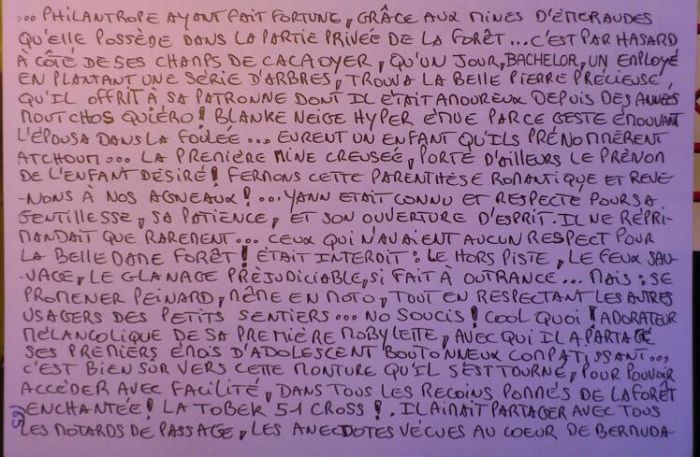 ... PHILANTROPE AYANT FAIT FORTUNE, GRÂCE AUX MINES D'ÉMERAUDES
QU'ELLE POSSÈDE DANS LA PARTIE PRIVÉE DE LA FORÊT... C'EST PAR HASARD
À CÔTÉ DE SES CHAMPS DE CACAOYER, QU'UN JOUR, BACHELOR, UN EMPLOYÉ
EN PLANTANT UNE SÉRIE D'ARBRES, TROUVA LA BELLE PIERRE PRÉCIEUSE
QU'IL OFFRIT À SA PATRONNE DONT IL ÉTAIT AMOUREUX DEPUIS DES ANNÉES
MOUTCHOS QUIÉRO! BLANKE NEIGE HYPER ÉMUE PAR CE GESTE ÉMOUVANT
L'ÉPOUSA DANS LA FOULÉE... EURENT UN ENFANT QU'ILS PRÉNOMMÈRENT
ATCHOUM... LA PREMIÈRE MINE CREUSÉE, PORTE D'AILLEURS LE PRÉNOM
DE L'ENFANT DÉSIRÉ! FERMONS CETTE PARENTHÈSE ROMANTIQUE ET REVE-
-NONS À NOS AGNEAUX!... YANN ETAIT CONNU ET RESPECTÉ POUR SA
GENTILLESSE, SA PATIENCE, ET SON OUVERTURE D'ESPRIT. IL NE RÉPRI-
MANDAIT QUE RAREMENT... CEUX QUI N'AVAIENT AUCUN RESPECT POUR
LA BELLE DAME FORÊT! ÉTAIT INTERDIT: LE HORS PISTE, LE FEUX SAU-
-VAGE, LE GLANAGE PRÉJUDICIABLE, SI FAIT À OUTRANCE... MAIS: SE
PROMENER PEINARD, MÊME EN MOTO, TOUT EN RESPECTANT LES AUTRES
USAGERS DES PETITS SENTIERS... NO SOUCIS! COOL QUOI! ADORATEUR
MÉLANCOLIQUE DE SA PREMIÈRE MOBYLETTE, AVEC QUI IL A PARTAGÉ
SES PREMIERS ÉMOIS D'ADOLESCENT BOUTONNEUX COMPATISSANT...
C'EST BIEN SÛR VERS CETTE MONTURE QU'IL S'EST TOURNÉ, POUR POUVOIR
ACCÈDER AVEC FACILITÉ, DANS TOUS LES RECOINS PAUMÉS DE LA FORÊT
ENCHANTÉE! LA TOBEK 51 CROSS!. IL AIMAIT PARTAGER AVEC TOUS
LES MOTARDS DE PASSAGE, LES ANECDOTES VÉCUES AU COEUR DE BERMUDA-